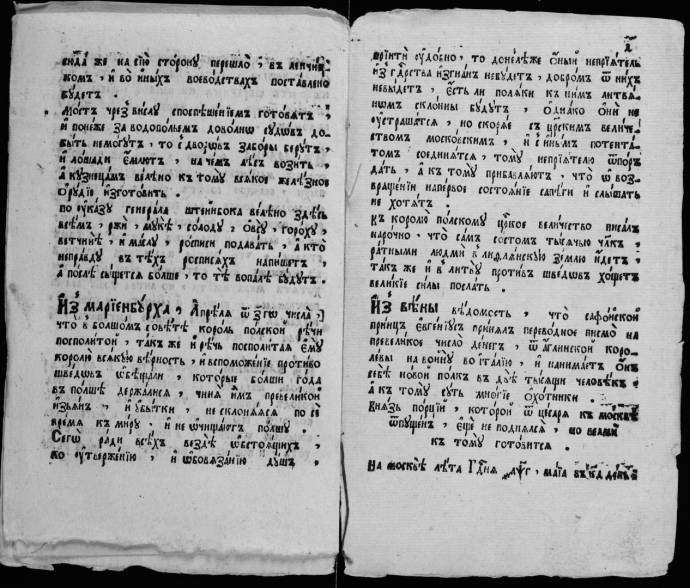 сюда же на сїю сторону перешло, въ ленчиц
комъ, и во иныхъ воеводствахъ поставлено
будетъ.
мостъ чрез вислу споспѣшенїемъ готовятъ,
и понеже за водопольем доволно судовъ до
быть немогутъ, то с дворовъ заборы берутъ,
и лошади емлютъ, на чемъ лѣсъ возить,
а кузнецамъ велѣно к тому всякое желѣзное
орудїе изготовить.
по указу генерала штейнбока велѣно здѣсь
всемъ, ржи, мукѣ, солоду, овсу, гороху,
ветчинѣ, и маслу, росписи подавать, а кто
неправду в тѣхъ росписяхъ напишетъ,
а послѣ сыщется болше, то тѣ вопалѣ будутъ.
Из марїенбурха, апрѣля ѿ числа,
что в болшомъ совѣтѣ король полской рѣчи
посполитой, такъ же и рѣчь посполитая ему
королю всякую вѣрность, и вспоможенїе противо
шведѡвъ ѡбѣщали, которые болши года
в полшѣ держалися, чиня им превеликой
изъянъ, и убытки, не склоняяся по се
время къ миру, и не очищаютъ полшу.
Сего ради всѣхъ вездѣ ѡбстоящихъ,
ко утверженїю, и ѡбовязанїю душъ,
прїити судобно, то донелѣже оный непрїятель
из гдрства изгнан небудетъ, добромъ ѿ нихъ
невыдетъ, есть ли поляки к нимъ литвя
номъ склонны будутъ, однако они не
устрашатся, но скорѣе съ црскимъ величе
ством московскимъ, и с инымъ потента
томъ соединятся, тому непрїятелю ѿпоръ
дать, а к тому прибавляютъ, что ѡ воз
вращенїи напервое состоянїе сапѣги и слышать
не хотятъ.
къ королю полскому црское величество писалъ
нарочно, что самъ состомъ тысячью члкъ,
ратными людми в лифлянскую землю идетъ,
такъ же и в литву против шведѡвъ хощетъ
великїе силы послать.
Из вѣны вѣдомость, что сафойской
принцъ евгенїусъ принялъ переводное писмо на
превеликое число денегъ, ѿ аглинской коро
левы на войну во италїю, и нанимаетъ онъ
себѣ новой полкъ в двѣ тысящи человѣкъ,
а къ тому суть многїе охотники.
князь порцїй, которой ѿ цесаря к москвѣ
ѿпущенъ, еще не поднялся, но велми
къ тому готовится.
На москвѣ лѣта Гдня ҂аѱг, маїа въ день